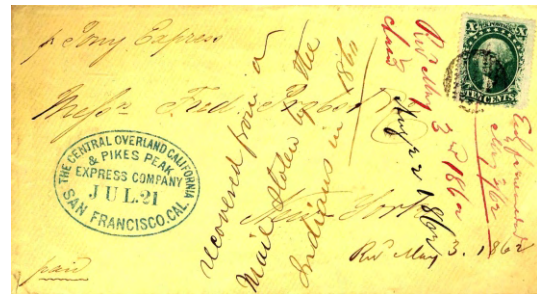 p Pony Express
Messrs Fred. Probst
New York
paid
THE CENTRAL OVERLAND CALIFORNIA
& PIKES PEAK
EXPRESS COMPANY
JUL. 21
SAN FRANCISCO. CAL.
recovered from a
Mail stolen by the
Indians in 1860
Recd May
3rd 1862
May 2 1862
Recd May 3. 1862
X U.S. POSTAGE X
TEN CENTS.